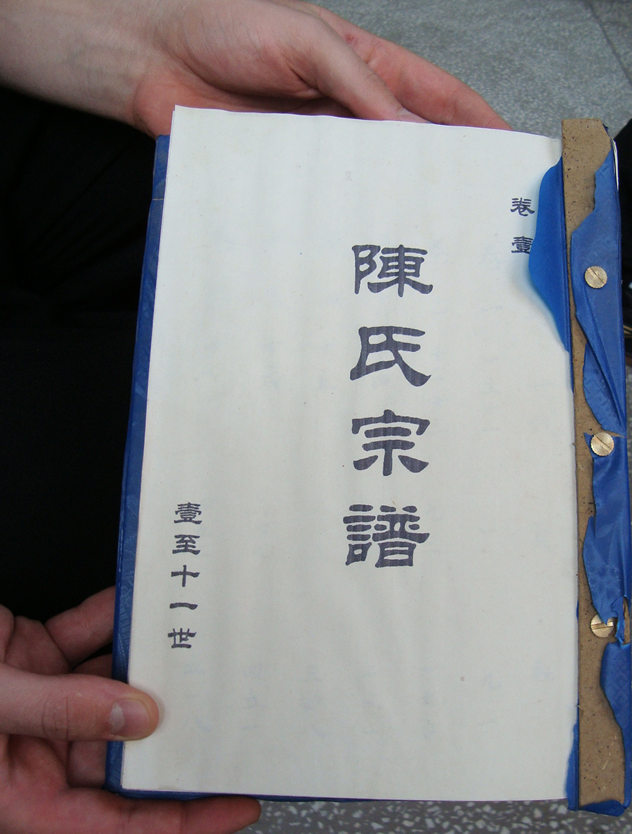 卷壹
陳氏宗譜
壹至十一世